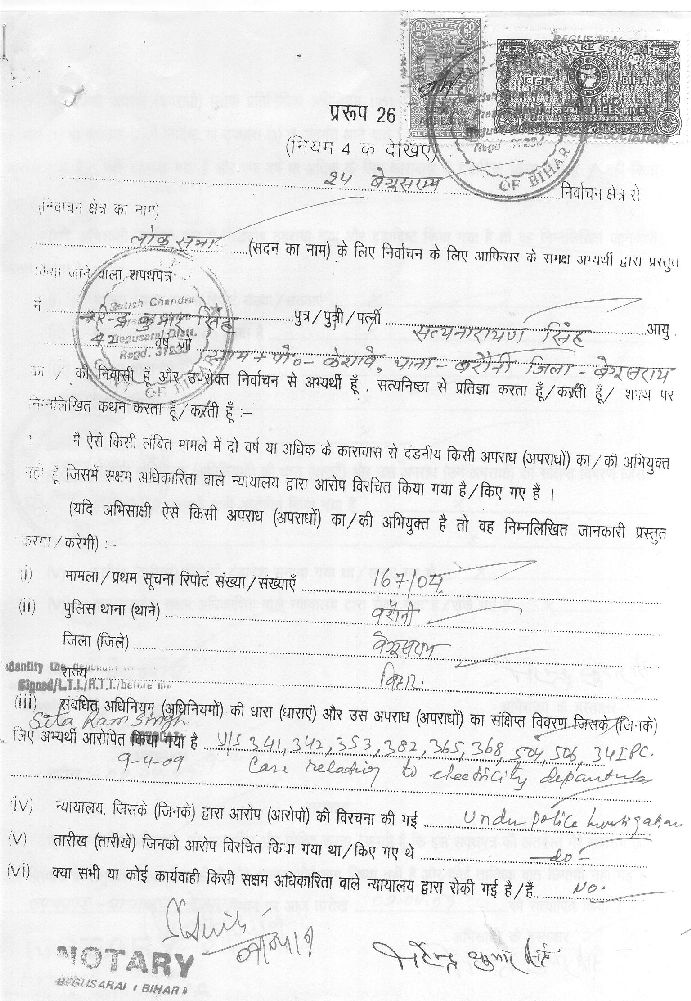 प्ररूप 26
(नियम 4 क देखिए)
24 बेगूसराय निर्वाचन क्षेत्र से
(निर्वाचन क्षेत्र का नाम)
लोक सभा (सदन का नाम) के लिए निर्वाचन के लिए आफिसर के समक्ष अभ्यर्थी द्वारा प्रस्तुत
किया जाने वाला शपथपत्र
मैं नरेन्द्र कुमार सिंह पुत्र/पुत्री/पत्नी सत्यनारायण सिंह आयु
42 वर्ष जो ग्राम + पो०- केशावे, थाना- बरौनी जिला- बेगूसराय
का / की निवासी हूँ और उपरोक्त निर्वाचन से अभ्यर्थी हूँ , सत्यनिष्ठा से प्रतिज्ञा करता हूँ/करती हूँ/ शपथ पर
निम्नलिखित कथन करता हूँ/करती हूँ :–
मैं ऐसे किसी लंबित मामले में दो वर्ष या अधिक के कारावास से दंडनीय किसी अपराध (अपराधों) का/की अभियुक्त
नहीं हूँ जिसमें सक्षम अधिकारिता वाले न्यायालय द्वारा आरोप विरचित किया गया है/किए गए है ।
(यदि अभिसाक्षी ऐसे किसी अपराध (अपराधों) का/की अभियुक्त है तो वह निम्नलिखित जानकारी प्रस्तुत
करेगा/करेगी) :–
(i) मामला/प्रथम सूचना रिपोर्ट संख्या/संख्याएँ 167/04
(ii) पुलिस थाना (थाने) बरौनी
जिला (जिले) बेगूसराय
राज्य बिहार
Identify the deponent
Signed/L.T.I./R.T.I./before me
(iii) संबंधित अधिनियम (अधिनियमों) की धारा (धाराएं) और उस अपराध (अपराधों) का संक्षिप्त विवरण जिसके (जिनके)
Sita Ram Singh
लिए अभ्यर्थी आरोपित किया गया है U/S 341, 342, 353, 382, 365, 368, 504, 506, 34 IPC.
9-4-09 Case relating to electricity department
(iv) न्यायालय, जिसके (जिनके) द्वारा आरोप (आरोपो) की विरचना की गई Under police Investigation
(v) तारीख (तारीखे) जिनको आरोप विरचित किया गया था/किए गए थे -do-
(vi) क्या सभी या कोई कार्यवाही किसी सक्षम अधिकारिता वाले न्यायालय द्वारा रोकी गई है/हैं No.
नरेन्द्र कुमार सिंह
NOTARY
BEGUSARAI (BIHAR)